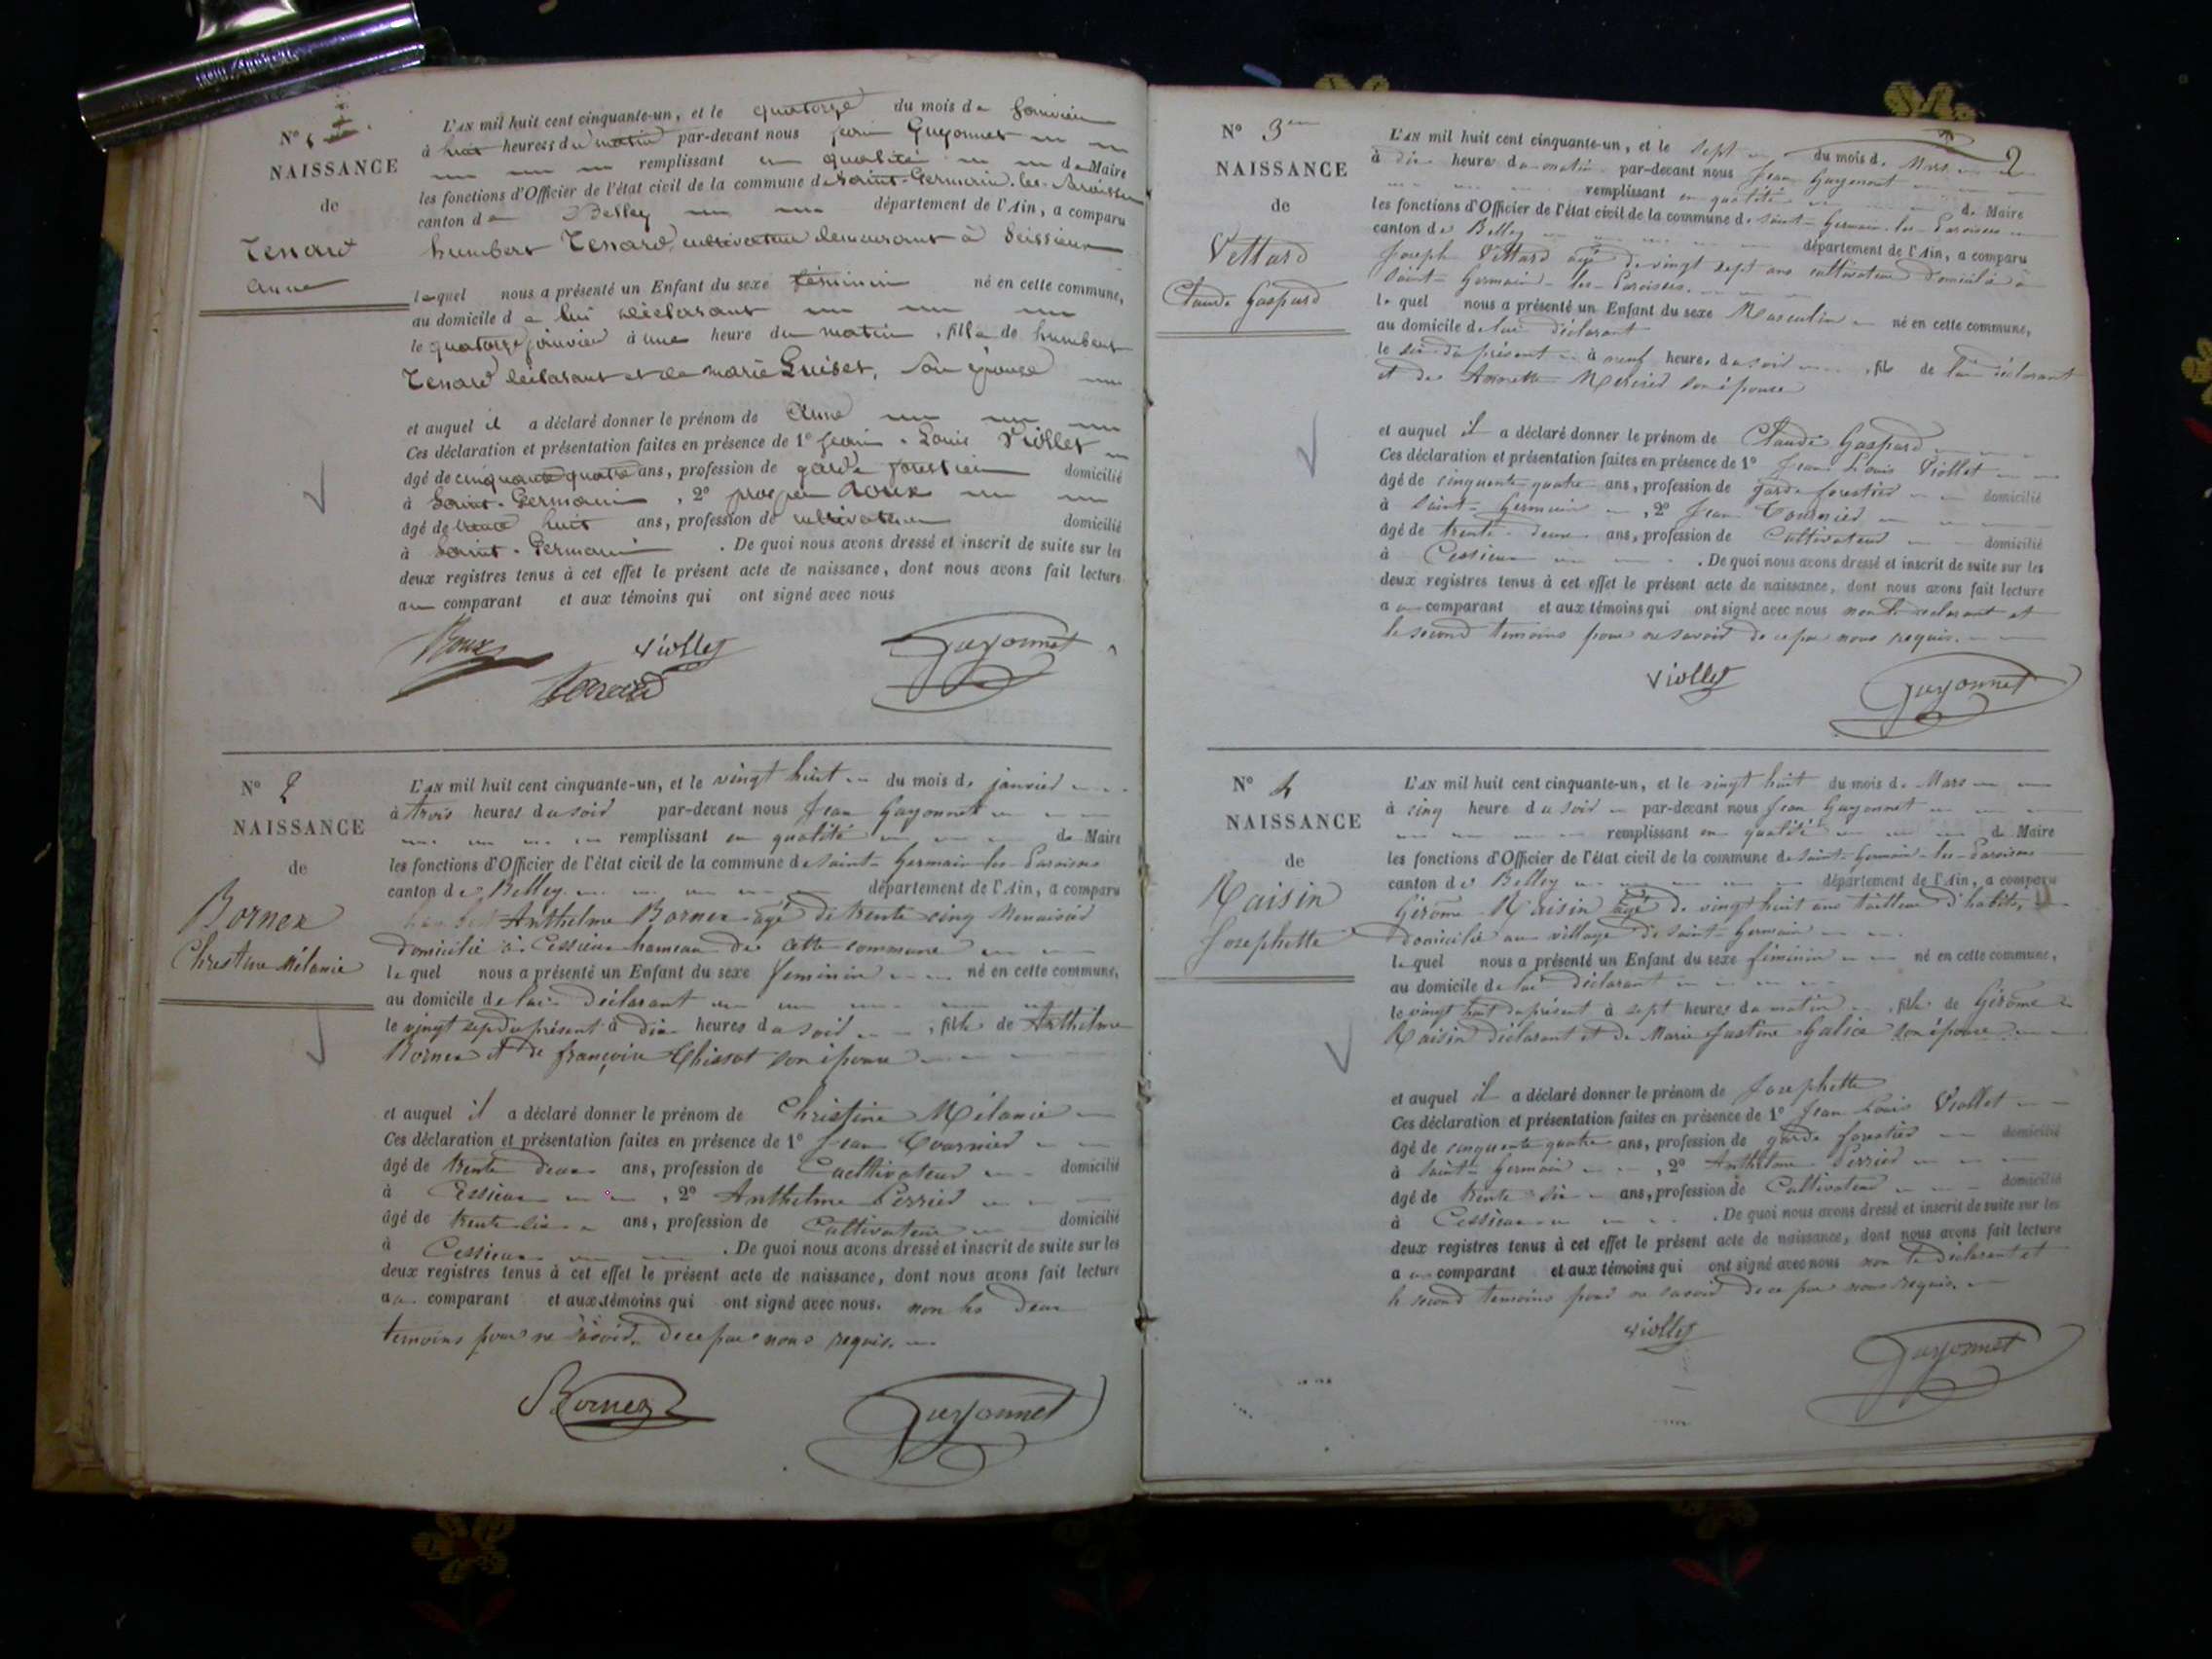 N° 1
NAISSANCE
de
Tenard
Anne
L'AN mil huit cent cinquante-un, et le quatorze du mois de Janvier
à huit heures du matin par-devant nous Jean Guyonnet
remplissant en qualité de Maire
les fonctions d'Officier de l'état civil de la commune de Saint-Germain-les-Paroisses
canton de Belley département de l'Ain, a comparu
humbert Tenard, cultivateur demeurant à
lequel nous a présenté un Enfant du sexe féminin né en cette commune,
au domicile de lui déclarant
le quatorze janvier à une heure du matin, fille de humbert
Tenard déclarant et de marie Guiset, son épouse
et auquel il a déclaré donner le prénom de Anne
Ces déclaration et présentation faites en présence de 1° Jean-Louis Viollet
âgé de cinquante quatre ans, profession de garde forestier domicilié
à Saint-Germain, 2° prosper Roux
âgé de trente huit ans, profession de cultivateur domicilié
à Saint-Germain. De quoi nous avons dressé et inscrit de suite sur les
deux registres tenus à cet effet le présent acte de naissance, dont nous avons fait lecture
au comparant et aux témoins qui ont signé avec nous
Roux Viollet Guyonnet
Tenard
N° 2
NAISSANCE
de
Bornex
Christine Mélanie
L'AN mil huit cent cinquante-un, et le vingt huit du mois de janvier
à trois heures du soir par-devant nous Jean Guyonnet
remplissant en qualité de Maire
les fonctions d'Officier de l'état civil de la commune de Saint-Germain-les-Paroisses
canton de Belley département de l'Ain, a comparu
Anthelme Bornex âgé de trente cinq Menuisier
domicilié à Cessieux hameau de cette commune
lequel nous a présenté un Enfant du sexe féminin né en cette commune,
au domicile de lui déclarant
le vingt sept du présent à dix heures du soir, fille de Anthelme
Bornex et de françoise Chissot son épouse
et auquel il a déclaré donner le prénom de Christine Mélanie
Ces déclaration et présentation faites en présence de 1° Jean Tournier
âgé de trente deux ans, profession de Cultivateur domicilié
à Cessieux, 2° Anthelme Perrier
âgé de trente six ans, profession de Cultivateur domicilié
à Cessieux. De quoi nous avons dressé et inscrit de suite sur les
deux registres tenus à cet effet le présent acte de naissance, dont nous avons fait lecture
au comparant et aux témoins qui ont signé avec nous. non les deux
temoins pour ne savoir de ce par nous requis.
Bornex Guyonnet
2
N° 3
NAISSANCE
de
Vettard
Claude Gaspard
L'AN mil huit cent cinquante-un, et le sept du mois de Mars
à dix heures du matin par-devant nous Jean Guyonnet
remplissant en qualité de Maire
les fonctions d'Officier de l'état civil de la commune de Saint-Germain-les-Paroisses
canton de Belley département de l'Ain, a comparu
Joseph Vettard âgé de vingt sept ans cultivateur domicilié à
Saint-Germain-les-Paroisses.
lequel nous a présenté un Enfant du sexe Masculin né en cette commune,
au domicile de lui déclarant
le six du présent à neuf heures du soir, fils de lui déclarant
et de Annette Mercier son épouse
et auquel il a déclaré donner le prénom de Claude Gaspard
Ces déclaration et présentation faites en présence de 1° Jean Louis Viollet
âgé de cinquante quatre ans, profession de garde forestier domicilié
à Saint-Germain, 2° Jean Tournier
âgé de trente deux ans, profession de Cultivateur domicilié
à Cessieux. De quoi nous avons dressé et inscrit de suite sur les
deux registres tenus à cet effet le présent acte de naissance, dont nous avons fait lecture
au comparant et aux témoins qui ont signé avec nous non le déclarant et
le second temoins pour ne savoir de ce par nous requis.
Viollet Guyonnet
N° 4
NAISSANCE
de
Raisin
Josephette
L'AN mil huit cent cinquante-un, et le vingt huit du mois de Mars
à cinq heure du soir par-devant nous Jean Guyonnet
remplissant en qualité de Maire
les fonctions d'Officier de l'état civil de la commune de Saint-Germain-les-Paroisses
canton de Belley département de l'Ain, a comparu
Gérôme Raisin âgé de vingt huit ans tailleur d'habits,
domicilié au village de Saint-Germain
lequel nous a présenté un Enfant du sexe féminin né en cette commune,
au domicile de lui déclarant
le vingt huit du présent à sept heures du matin, fille de Gérôme
Raisin déclarant et de Marie Justine Galice son épouse
et auquel il a déclaré donner le prénom de Josephette
Ces déclaration et présentation faites en présence de 1° Jean Louis Viollet
âgé de cinquante quatre ans, profession de garde forestier domicilié
à Saint-Germain, 2° Anthelme Perrier
âgé de trente six ans, profession de Cultivateur domicilié
à Cessieux. De quoi nous avons dressé et inscrit de suite sur les
deux registres tenus à cet effet le présent acte de naissance, dont nous avons fait lecture
au comparant et aux témoins qui ont signé avec nous non le déclarant et
le second temoins pour ne savoir de ce par nous requis.
Viollet Guyonnet